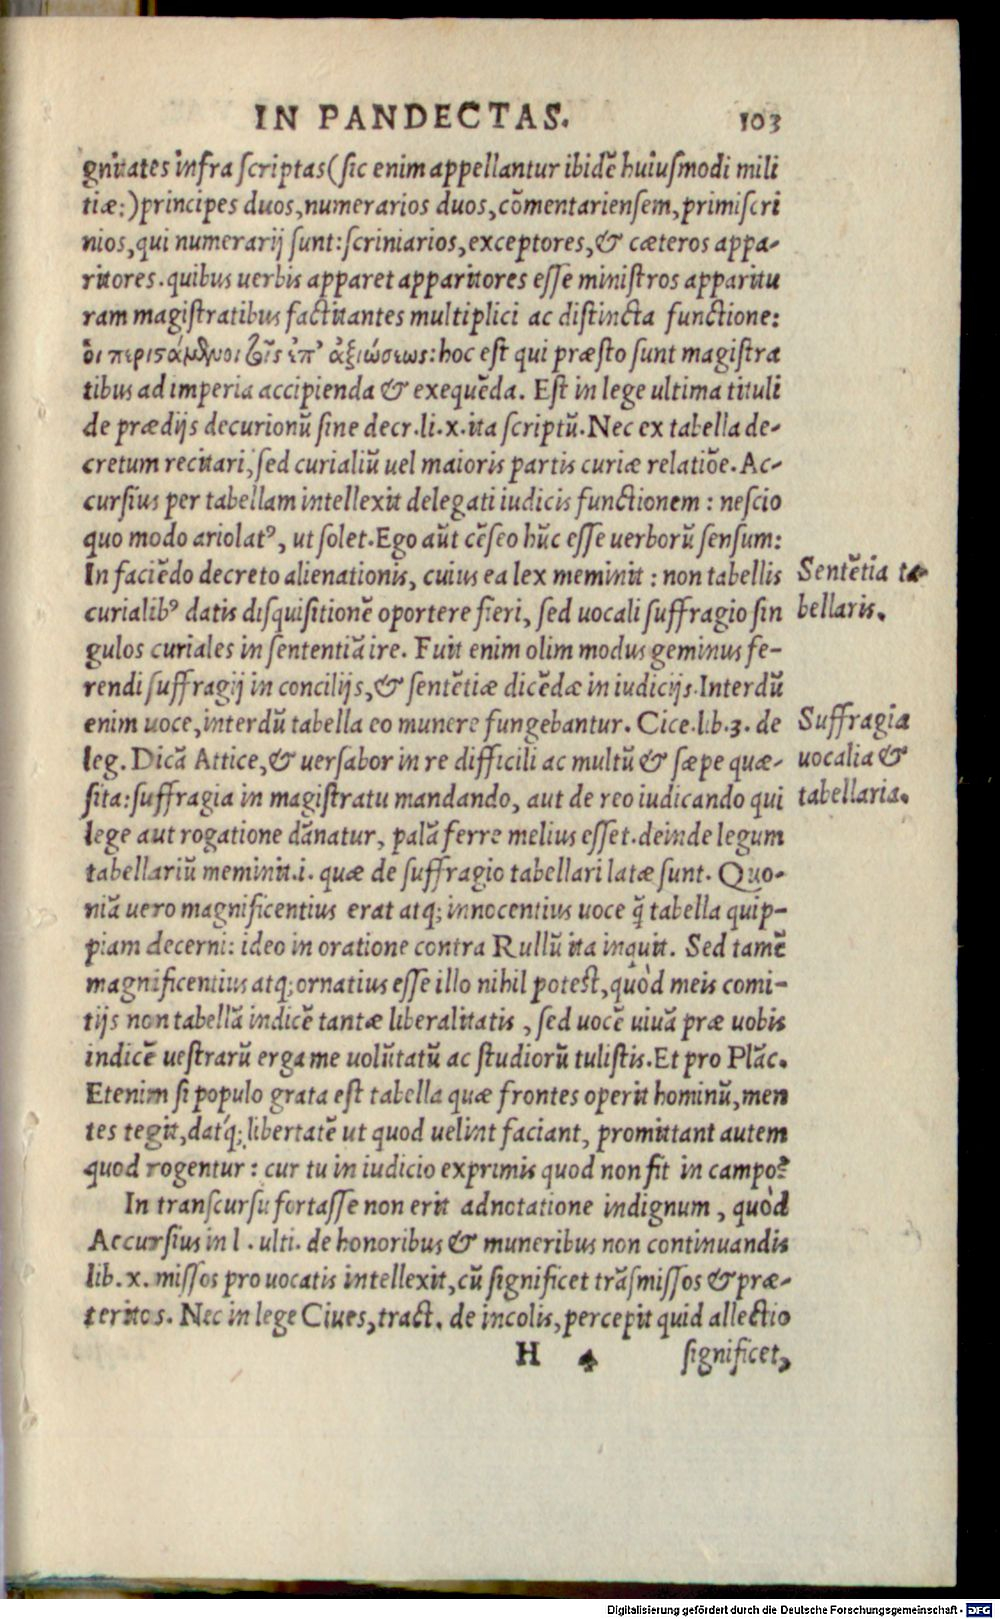 IN PANDECTAS. 103
gnitates infra scriptas (sic enim appellantur ibidē huiusmodi mili
tiæ:) principes duos, numerarios duos, cōmentariensem, primiscri
nios, qui numerarij sunt: scriniarios, exceptores, & cæteros appa-
ritores. quibus uerbis apparet apparitores esse ministros apparitu
ram magistratibus factitantes multiplici ac distincta functione:
ὁι περιϊστάμϑνοι τοῖς ἐπ' ἀξιώσεως: hoc est qui præsto sunt magistra
tibus ad imperia accipienda & exequēda. Est in lege ultima tituli
de prædijs decurionū sine decr. li. x. ita scriptū. Nec ex tabella de-
cretum recitari, sed curialiū uel maioris partis curiæ relatiōe. Ac-
cursius per tabellam intellexit delegati iudicis functionem: nescio
quo modo ariolatꝰ, ut solet. Ego aūt cēseo hūc esse uerborū sensum:
In faciēdo decreto alienationis, cuius ea lex meminit: non tabellis
Sentētia ta-
curialibꝰ datis disquisitionē oportere fieri, sed uocali suffragio sin
bellaris.
gulos curiales in sententiā ire. Fuit enim olim modus geminus fe-
rendi suffragij in concilijs, & sentētiæ dicēdæ in iudicijs. Interdū
enim uoce, interdū tabella eo munere fungebantur. Cice. lib. 3. de
Suffragia
leg. Dicā Attice, & uersabor in re difficili ac multū & sæpe quæ-
uocalia &
sita: suffragia in magistratu mandando, aut de reo iudicando qui
tabellaria.
lege aut rogatione dānatur, palā ferre melius esset. deinde legum
tabellariū meminit. i. quæ de suffragio tabellari latæ sunt. Quo-
niā uero magnificentius erat atq; innocentius uoce q̄ tabella quip-
piam decerni: ideo in oratione contra Rullū ita inquit. Sed tamē
magnificentius atq; ornatius esse illo nihil potest, quòd meis comi-
tijs non tabellā indicē tantæ liberalitatis, sed uocē uiuā præ uobis
indicē uestrarū erga me volūtatū ac studiorū tulistis. Et pro Plāc.
Etenim si populo grata est tabella quæ frontes operit hominū, men
tes tegit, datq́; libertatē ut quod uelint faciant, promittant autem
quod rogentur: cur tu in iudicio exprimis quod non fit in campo?
In transcursu fortasse non erit adnotatione indignum, quòd
Accursius in l. ulti. de honoribus & muneribus non continuandis
lib. x. missos pro uocatis intellexit, cū significet trāsmissos & præ-
teritos. Nec in lege Ciues, tract. de incolis, percepit quid allectio
H ♠ significet,
Digitalisierung gefördert durch die Deutsche Forschungsgemeinschaft - DFG